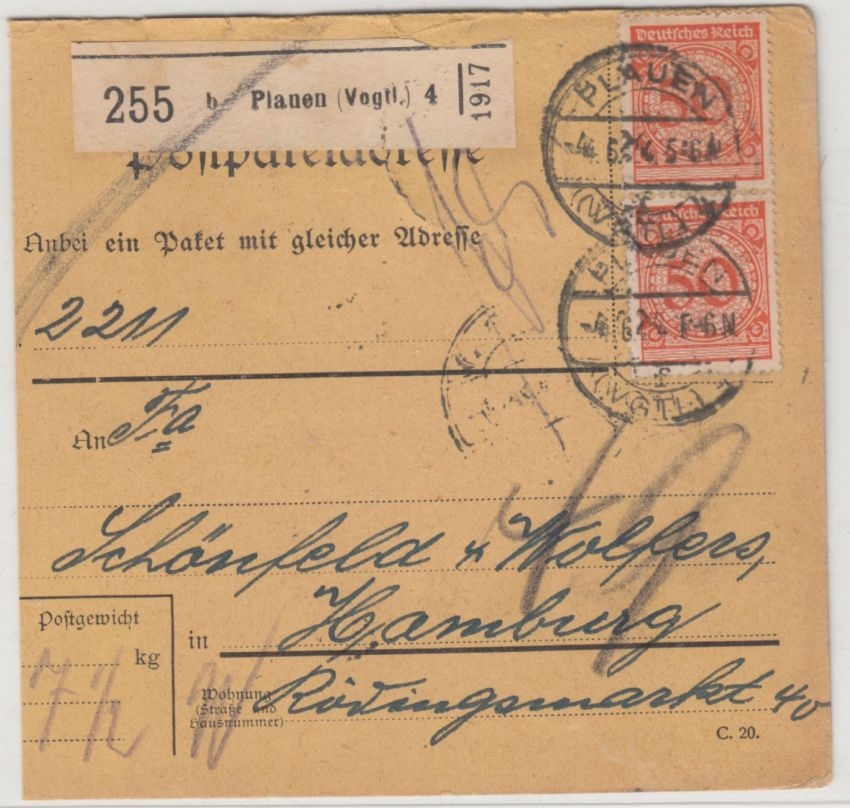 255 b Plauen (Vogtl.) 4 1917
Postpaketadresse
Anbei ein Paket mit gleicher Adresse
2211
An Fa
Schönfeld & Wolfers,
in Hamburg
Wohnung (Straße und Hausnummer) Rödingsmarkt 40
Postgewicht
kg
7 1/2
C. 20.
Deutsches Reich
PLAUEN
-4.6.24. 5-6N
(VOGTL.)
Deutsches Reich
50
PLAUEN
-4.6.24. 5-6N
(VOGTL.)
49